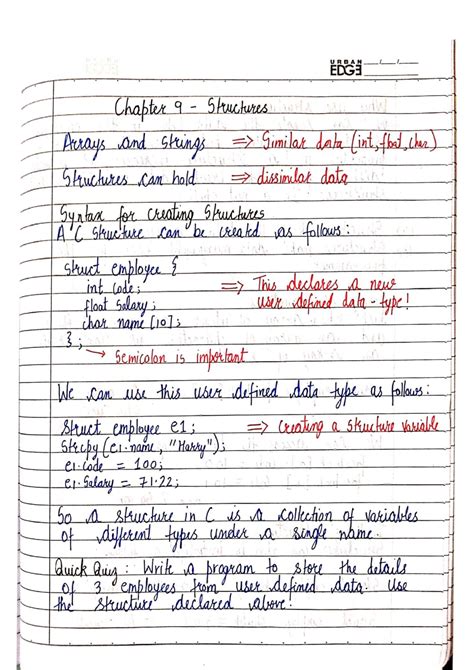 URBAN
EDGE
Chapter 9 - Structures
Arrays and Strings => Similar data (int, float, char)
Structures can hold => dissimilar data
Syntax for creating Structures
A C Structure can be created as follows:
struct employee {
int code; => This declares a new
float salary; user defined data-type!
char name [10];
};
→ Semicolon is important
We can use this user defined data type as follows:
struct employee e1; => Creating a structure variable
strcpy (e1.name, "Harry");
e1.code = 100;
e1.salary = 71.22;
So a structure in C is a collection of variables
of different types under a single name.
Quick Quiz : Write a program to store the details
of 3 employees from user defined data. Use
the structure declared above!